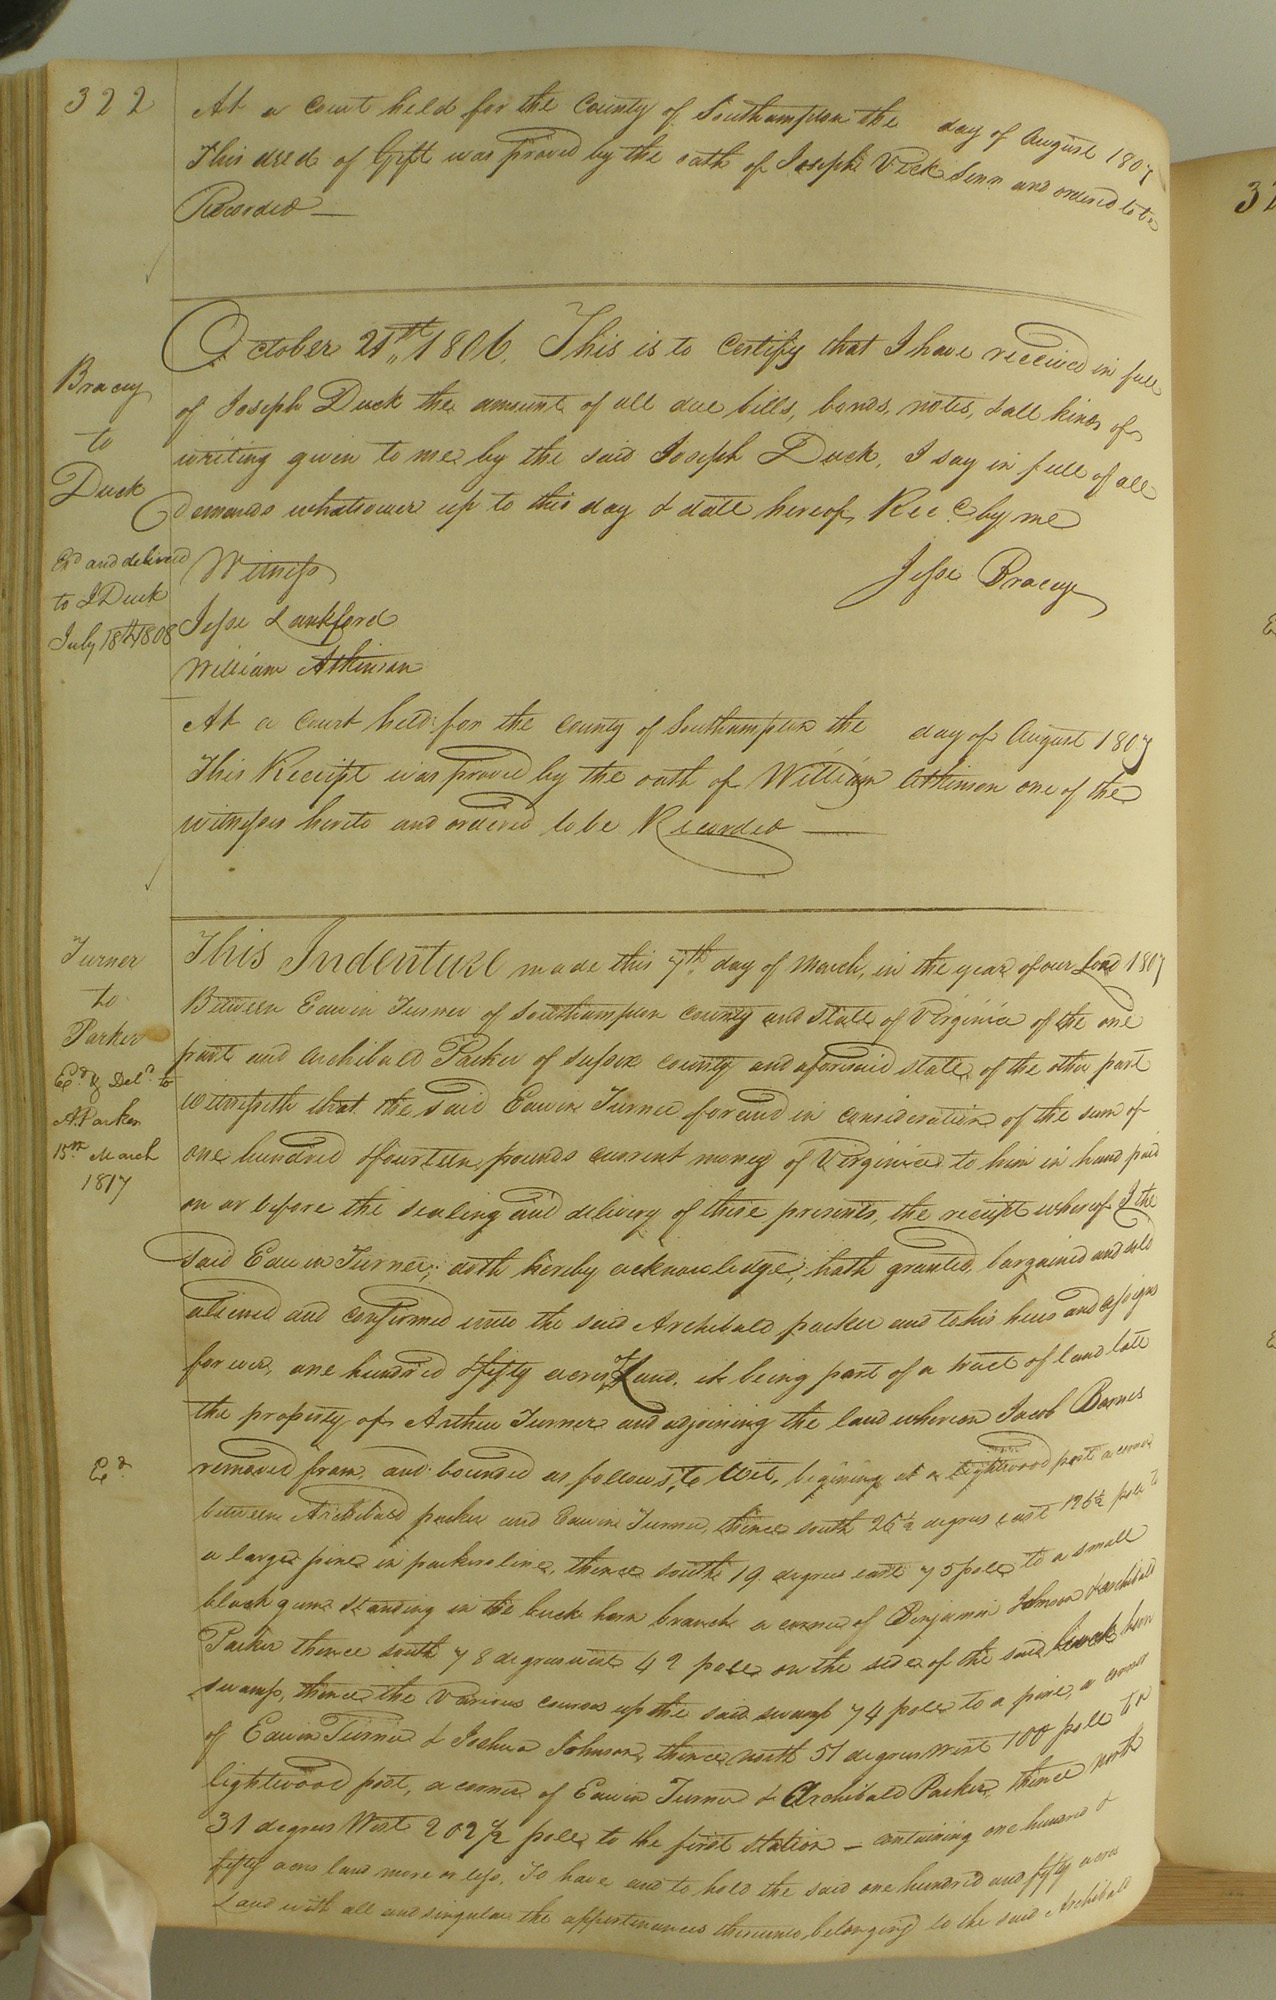 322
At a Court held for the County of Southampton the day of August 1807
This deed of Gift was proved by the oath of Joseph Vick Senr and ordered to be
Recorded —
Bracey
to
Duck
Exd and delivered
to J Duck
July 18th 1808
October 21st 1806, This is to Certify that I have received in full
of Joseph Duck the amount of all due bills, bonds, notes, & all kinds of
writing given to me by the said Joseph Duck, I say in full of all
demands whatsoever up to this day & date hereof, Recd by me
Jesse Bracey
Witness
Jesse Lankford
William Atkinson
At a Court held for the County of Southampton the day of August 1807
This Receipt was proved by the oath of William Atkinson one of the
witnesses hereto and ordered to be Recorded —
Turner
to
Parker
Exd & Deld to
A Parker
15th March
1817
Exd
This Indenture made this 7th day of March, in the year of our Lord 1807
Between Edwin Turner of Southampton County and State of Virginia of the one
part and Archibald Parker of Sussex County and aforesaid state, of the other part
Witnesseth that the said Edwin Turner for and in consideration of the sum of
one hundred & fourteen pounds current money of Virginia to him in hand paid
on or before the sealing and delivery of these presents, the receipt whereof I the
said Edwin Turner, doth hereby acknowledge, hath granted, bargained and sold
aliened and confirmed unto the said Archibald parker and to his heirs and assigns
forever, one hundred & fifty acres of Land, it being part of a tract of land late
the property of Arthur Turner and adjoining the land whereon Jacob Barnes
removed from, and bounded as follows, to Wit, begining at a lightwood post a corner
between Archibald parker and Edwin Turner, thence south 26½ degrees east 126½ pole to
a large pine in parkers line, thence south 19 degrees east 75 pole to a small
black gum standing in the buck horn branch a corner of Benjamin Johnson & Archibald
Parker thence south 78 degrees west 42 pole on the side of the said buck horn
swamp, thence the various courses up the said swamp 74 pole to a pine, a corner
of Edwin Turner & Joshua Johnson, thence north 51 degrees West 100 pole to a
lightwood post, a corner of Edwin Turner & Archibald Parker, thence north
31 degrees West 202½ pole to the first station — containing one hundred &
fifty acres land more or less, To have and to hold the said one hundred and fifty acres
Land with all and singular the appertenances thereunto, belonging to the said Archibald